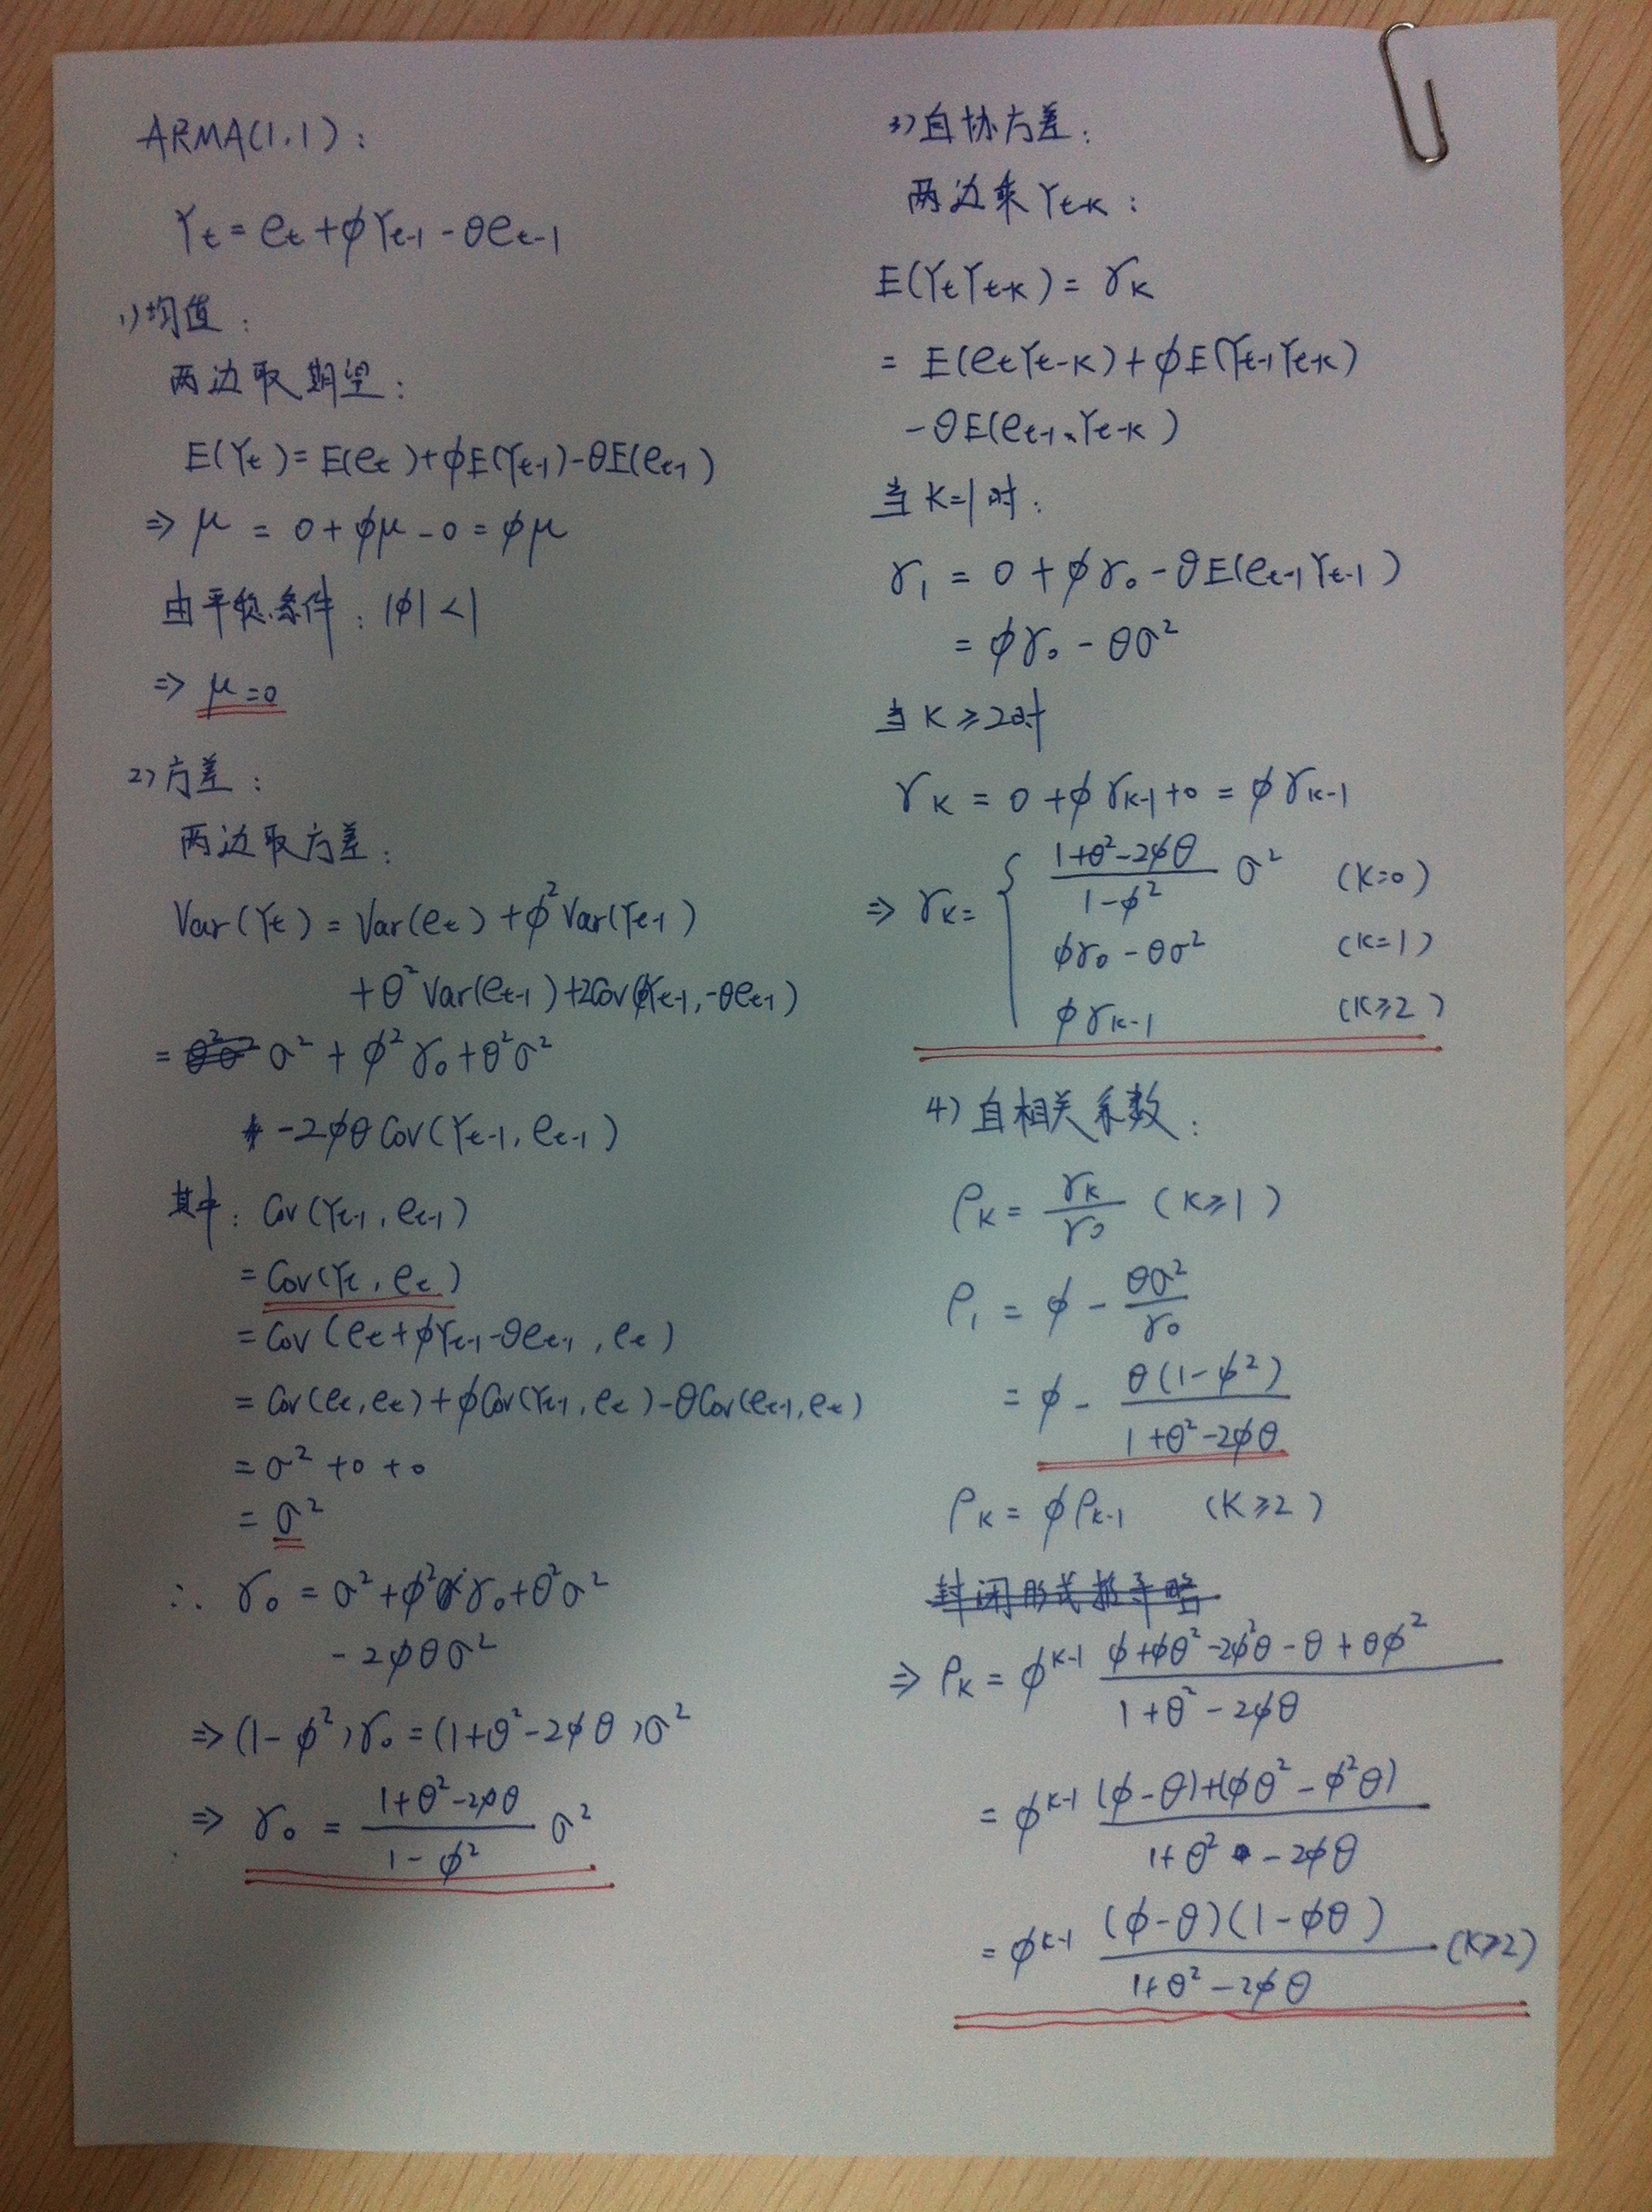 ARMA(1,1):
Yt = et + φYt-1 - θet-1
1) 均值:
两边取期望:
E(Yt) = E(et) + φE(Yt-1) - θE(et-1)
⇒ μ = 0 + φμ - 0 = φμ
由平稳条件: |φ| < 1
⇒ μ = 0
2) 方差:
两边取方差:
Var(Yt) = Var(et) + φ² Var(Yt-1)
+ θ² Var(et-1) + 2Cov(φYt-1, -θet-1)
= σ² + φ² γ0 + θ²σ²
- 2φθ Cov(Yt-1, et-1)
其中: Cov(Yt-1, et-1)
= Cov(Yt, et)
= Cov(et + φYt-1 - θet-1, et)
= Cov(et, et) + φCov(Yt-1, et) - θCov(et-1, et)
= σ² + 0 + 0
= σ²
∴ γ0 = σ² + φ²γ0 + θ²σ²
- 2φθσ²
⇒ (1-φ²)γ0 = (1+θ²-2φθ)σ²
⇒ γ0 = (1+θ²-2φθ)/(1-φ²) σ²
3) 自协方差:
两边乘 Yt-k:
E(YtYt-k) = γk
= E(etYt-k) + φE(Yt-1Yt-k)
- θE(et-1, Yt-k)
当 k=1 时:
γ1 = 0 + φγ0 - θE(et-1Yt-1)
= φγ0 - θσ²
当 k ≥ 2 时
γk = 0 + φγk-1 + 0 = φγk-1
⇒ γk = { (1+θ²-2φθ)/(1-φ²) σ² (k=0)
φγ0 - θσ² (k=1)
φγk-1 (k≥2)
4) 自相关系数:
ρk = γk/γ0 (k≥1)
ρ1 = φ - θσ²/γ0
= φ - θ(1-φ²)/(1+θ²-2φθ)
ρk = φρk-1 (k≥2)
封闭形式推导略
⇒ ρk = φ^k-1 (φ+φθ²-2φ²θ-θ+θφ²)/(1+θ²-2φθ)
= φ^k-1 ((φ-θ)+(φθ²-φ²θ))/(1+θ²-2φθ)
= φ^k-1 (φ-θ)(1-φθ)/(1+θ²-2φθ) (k≥2)